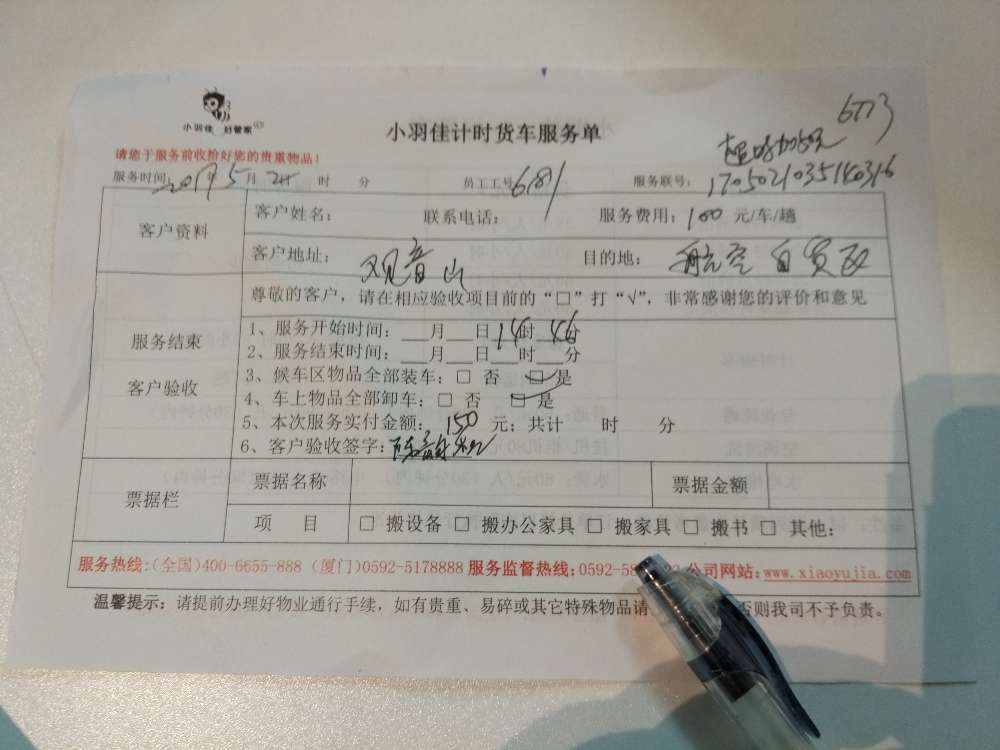 小羽佳 好管家
小羽佳计时货车服务单
6773
请您于服务前收拾好您的贵重物品!
服务时间: 2017年5月2日 时 分 员工工号 6181 服务联号: 1705021035140316
客户资料
客户姓名: 联系电话: 服务费用: 100 元/车/趟
客户地址: 观音山 目的地: 航空自贸区
尊敬的客户，请在相应验收项目前的“□”打“√”，非常感谢您的评价和意见
服务结束
客户验收
1、服务开始时间: ___月___日14时46分
2、服务结束时间: ___月___日___时___分
3、候车区物品全部装车: □ 否 □是
4、车上物品全部卸车: □ 否 □是
5、本次服务实付金额: 150 元; 共计 时 分
6、客户验收签字:
票据栏
票据名称 票据金额
项 目 □ 搬设备 □ 搬办公家具 □ 搬家具 □ 搬书 □ 其他:
服务热线:(全国)400-6655-888 (厦门)0592-5178888 服务监督热线:0592-5 公司网站:www.xiaoyujia.com
温馨提示: 请提前办理好物业通行手续, 如有贵重、易碎或其它特殊物品请 否则我司不予负责。